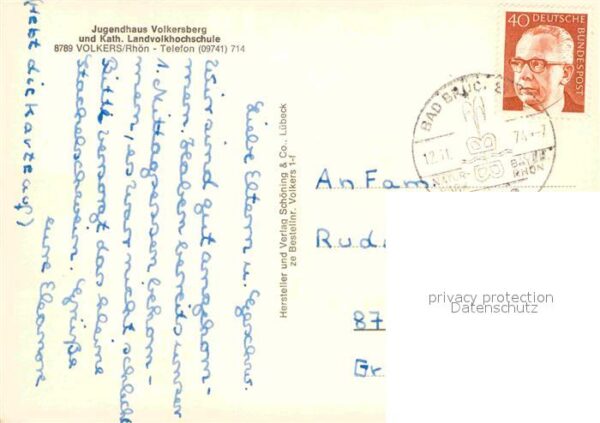 Jugendhaus Volkersberg
und Kath. Landvolkhochschule
8789 VOLKERS/Rhön - Telefon (09741) 714
Liebe Eltern u. Geschw.
Wir sind gut angekom-
men. Haben bereits unser
1. Mittagessen bekom-
men, es war nicht schlecht
Bitte versorgt das kleine
Stachelschwein. Grüße
eure Eleonore
(Hebt die Karte auf)
Hersteller und Verlag Schöning & Co., Lübeck
ze Bestellnr. Volkers 1-f
40 DEUTSCHE
BUNDESPOST
BAD BRÜC
12.11.
74-7
BAYER
RHÖN
An Fam
Rud
87
privacy protection
Datenschutz